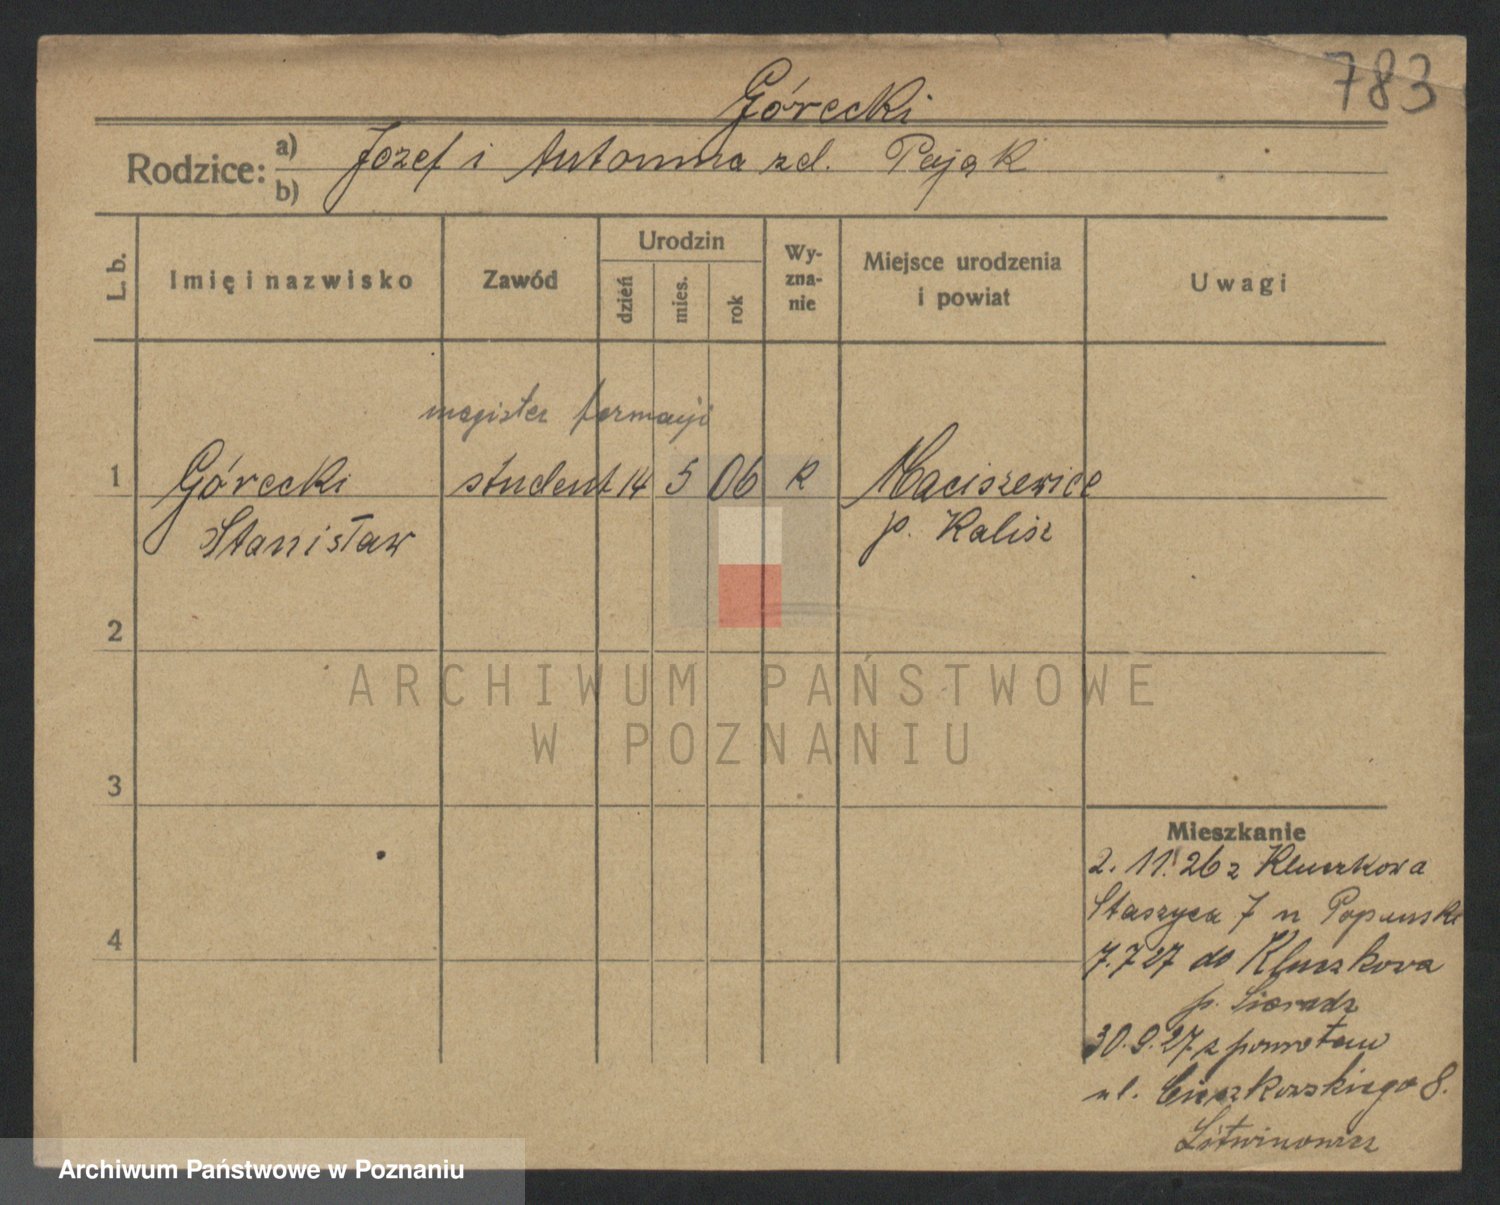 783
Górecki
Rodzice: a) Józef i Antonina zd. Pająk
b)
L. b. Imię i nazwisko Zawód Urodzin dzień mies. rok Wy-zna-nie Miejsce urodzenia i powiat Uwagi
magister farmacji
1 Górecki student 14 5 06 k Maciszewice
Stanisław p. Kalisz
2
ARCHIWUM PAŃSTWOWE
W POZNANIU
3
Mieszkanie
2. 11. 26 z Kluczkowa
Staszyca 7 n
4
7.7 27 do Kluczkowa
p. Sieradz
30.9.27 z powrotem
ul. Cieszkowskiego 8.
Litwinowicz
Archiwum Państwowe w Poznaniu